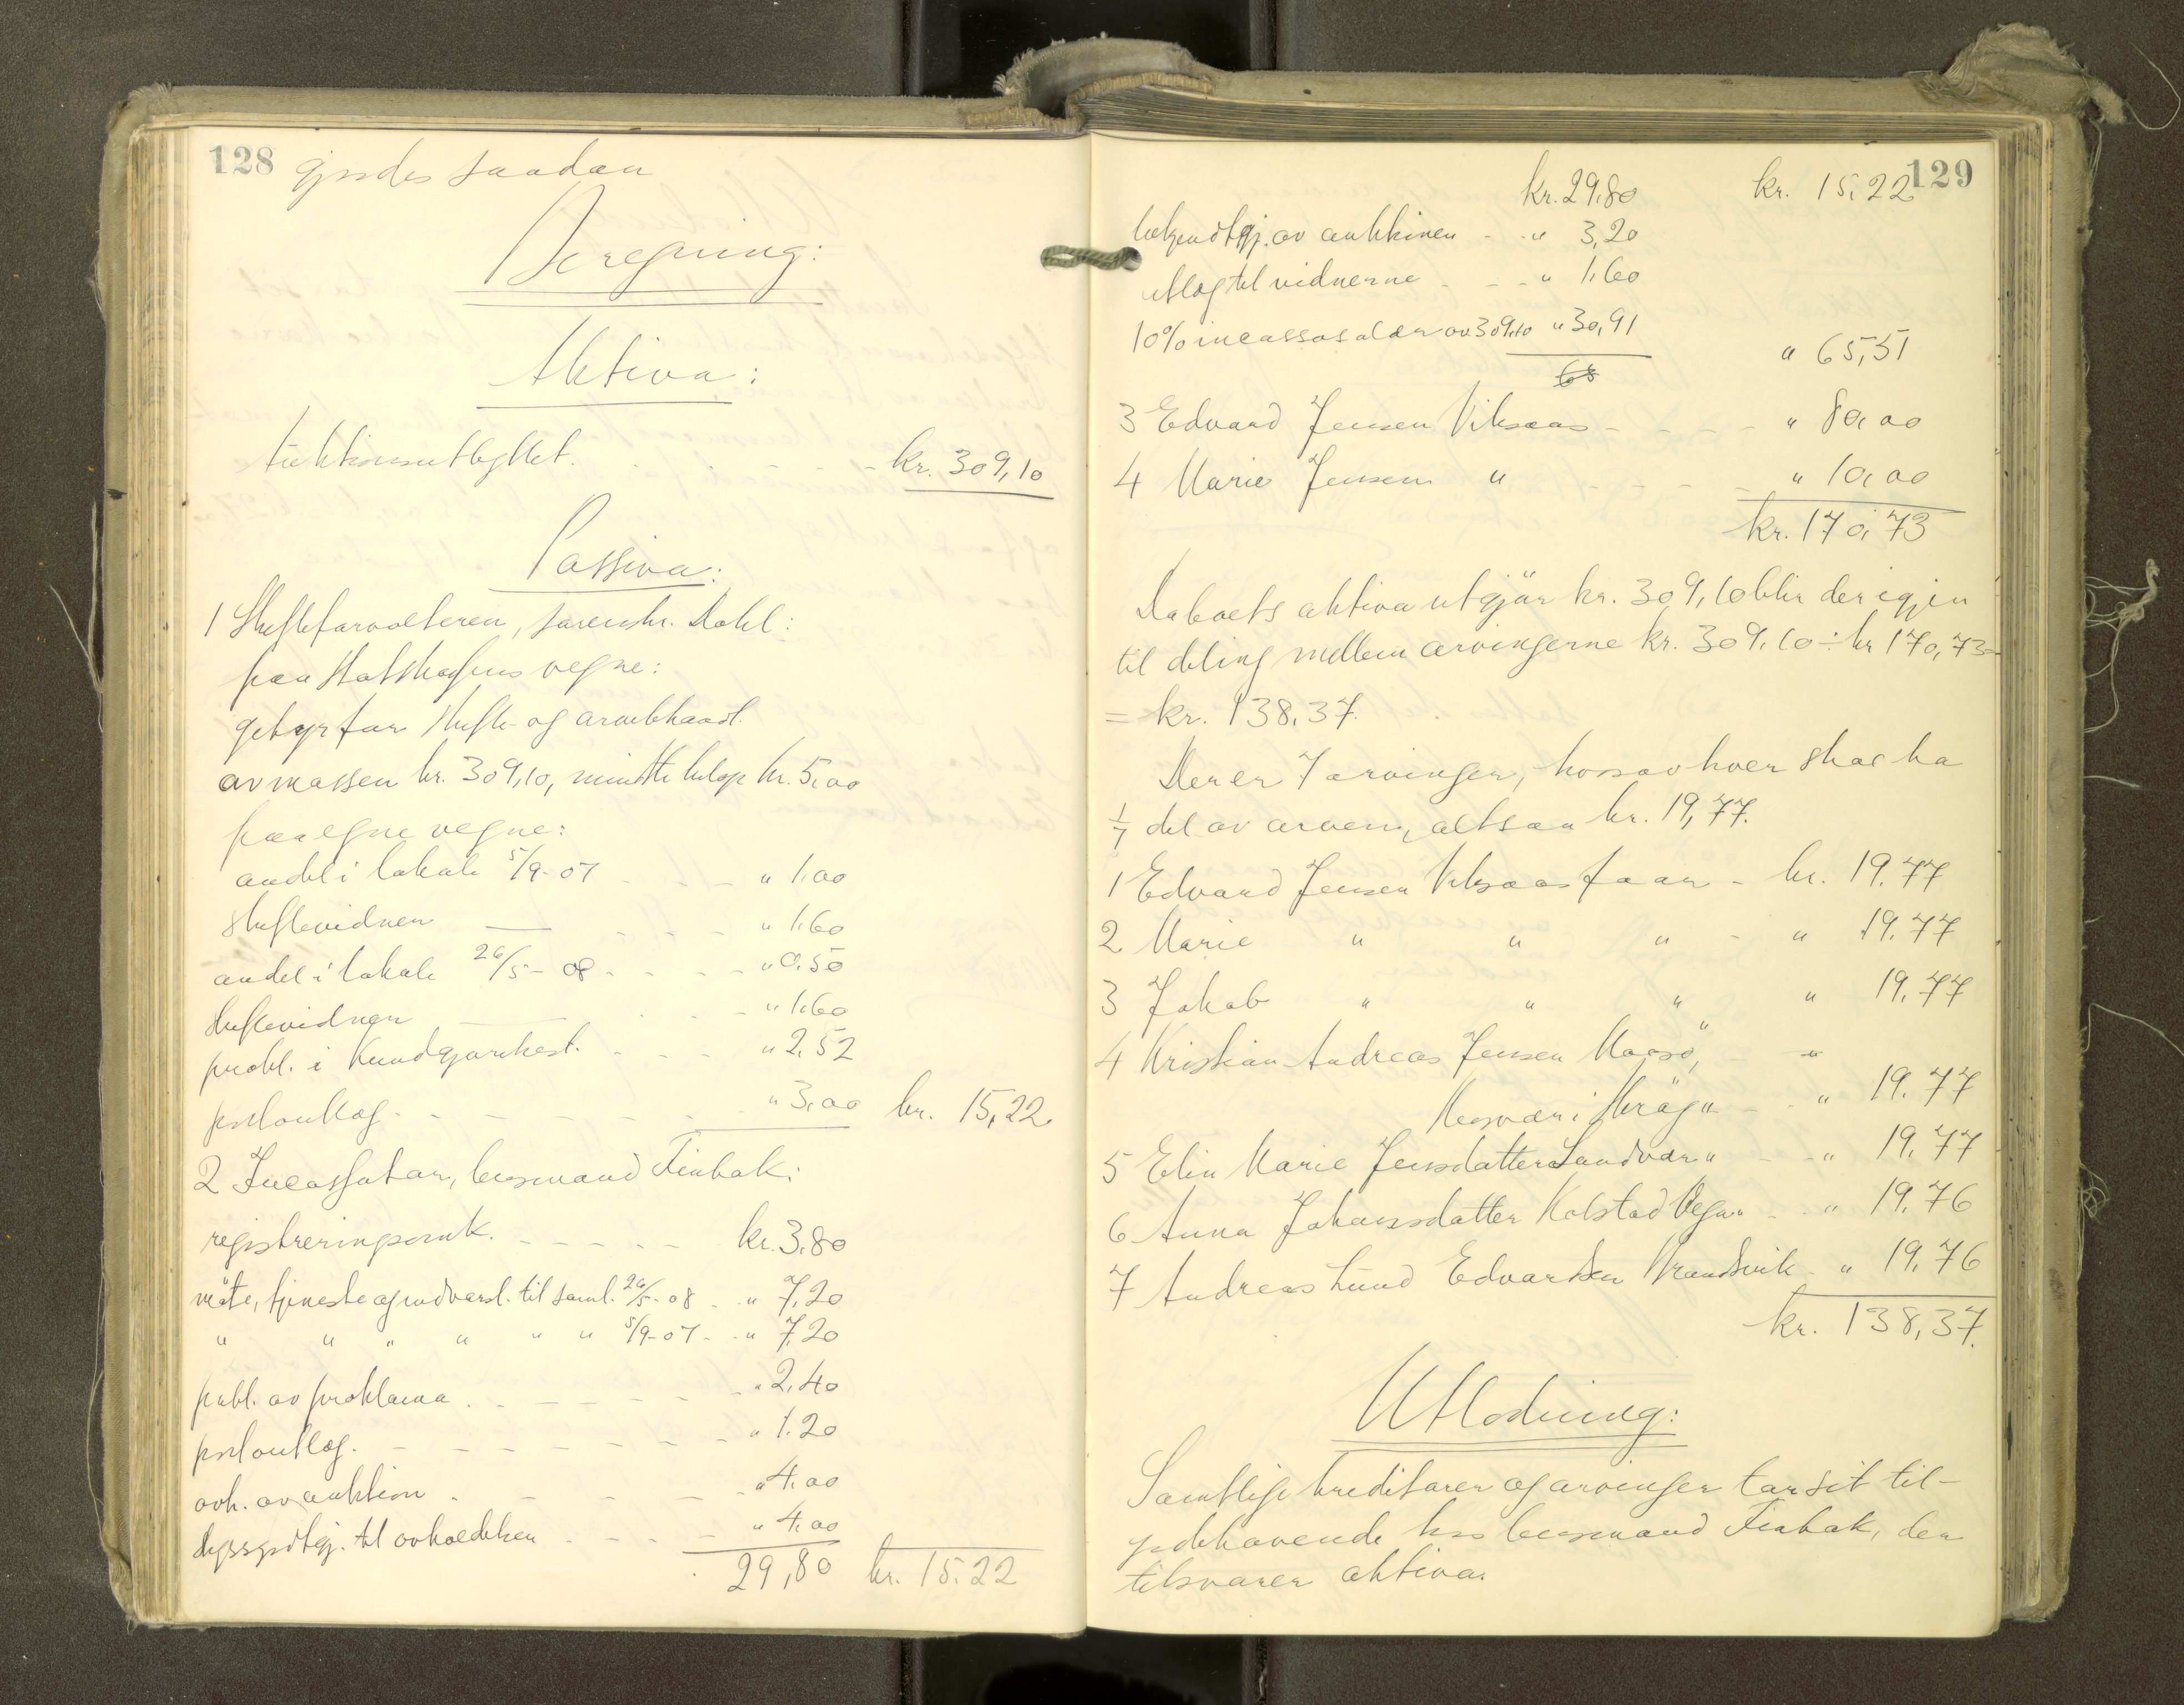 128 gjordes saadan
Beregning:
Aktiva:
Auktionsutbyttet. - - - - kr. 309,10
Passiva:
1 Skifteforvalteren, sorenskr. Dahl:
paa Statskassens vegne:
gebyr for skifte- og arvebehandl.
av massen kr. 309,10, mindste beløp kr. 5,00
paa egne vegne:
andel i lokale 5/9-07 - - - " 1,00
skiftevidner — - - - " 1,60
andel i lokale 26/5-08 - - - - " 0,50
skiftevidner — - - - " 1,60
probl. i Kundgjørelsest. - - - " 2,52
portoutlæg - - - - - - " 3,00 kr. 15,22
2 Incassator, lensmand Finbak:
registreringsomk. - - - - - kr. 3,80
møte, tjeneste og indvarsl. til saml. 26/5-08 - " 7,20
" " " " " " 5/9-07 - " 7,20
publ. av proklama - - - - - - " 2,40
portoutlæg. - - - - - - - " 1,20
avh. av auktion - - - - - " 4,00
til avholdelsen - - - - " 4,00
29,80 kr. 15,22
129
kr. 29,80 kr. 15,22
bekjendtgj. av auktionen - " 3,20
utlæg til vidnerne - - - " 1,60
10% incassosalær av 309,10 " 30,91
68 " 65,51
3 Edvard Jensen Viksaas - - - - " 80,00
4 Marie Jensen " - - - - " 10,00
kr. 170,73
Da boets aktiva utgjør kr. 309,10 blir der igjen
til deling mellem arvingerne kr. 309,10 ÷ kr 170,73 =
= kr. 138,37.
Der er 7 arvinger, hvorav hver skal ha
1/7 del av arven, altsaa kr. 19,77.
1 Edvard Jensen Viksaas faar - kr. 19.77
2 Marie " " " - " 19.77
3 Jakob " " " " 19.77
4 Kristian Andreas Jensen Maasø, "
i " - " 19.77
5 Elin Marie Jensdatter Sandvær " - - " 19.77
6 Anna Johansdatter Kolstad Vega " - - " 19.76
7 Andreas Lund Edvardsen Strandvik - " 19.76
kr. 138,37.
Utlodning:
Samtlige kreditorer og arvinger faar sit til-
godehavende hos lensmand Finbak, der
tilsvarer aktiva.